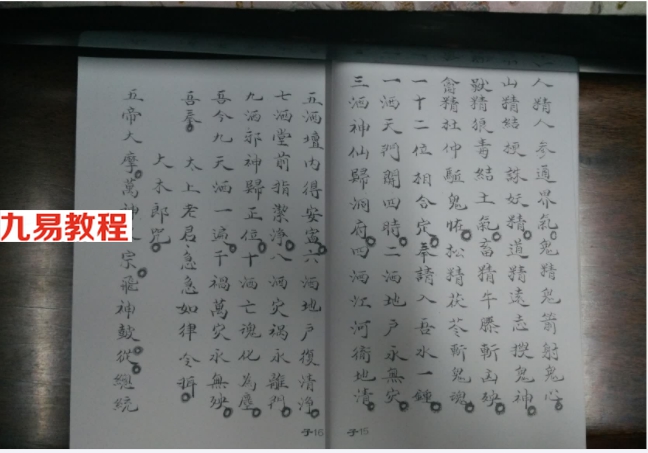 人精人參通界氣鬼精鬼箭射鬼心
山精桔梗誅妖精道精遠志搜鬼神
獸精狼青結土氣畜精牛膝斬凶殃
禽精杜仲驅鬼怪松精茯苓斬鬼魂
一十二位相合定奉請入吾水一鍾
一洒天門開四時二洒地户永無灾
三洒神仙歸洞府四洒江河衛地清
五洒壇内得安寧六洒地戶復清淨
七洒堂前指潔淨八洒灾禍永離門
九洒邪神歸正位十洒亡魂化為塵
吾今九天洒一遍千禍萬灾永無殃
吾奉 太上老君急急如律令
大木郎咒
五帝大摩萬神 宗飛神鼓從總統
子16
子15
九易教程